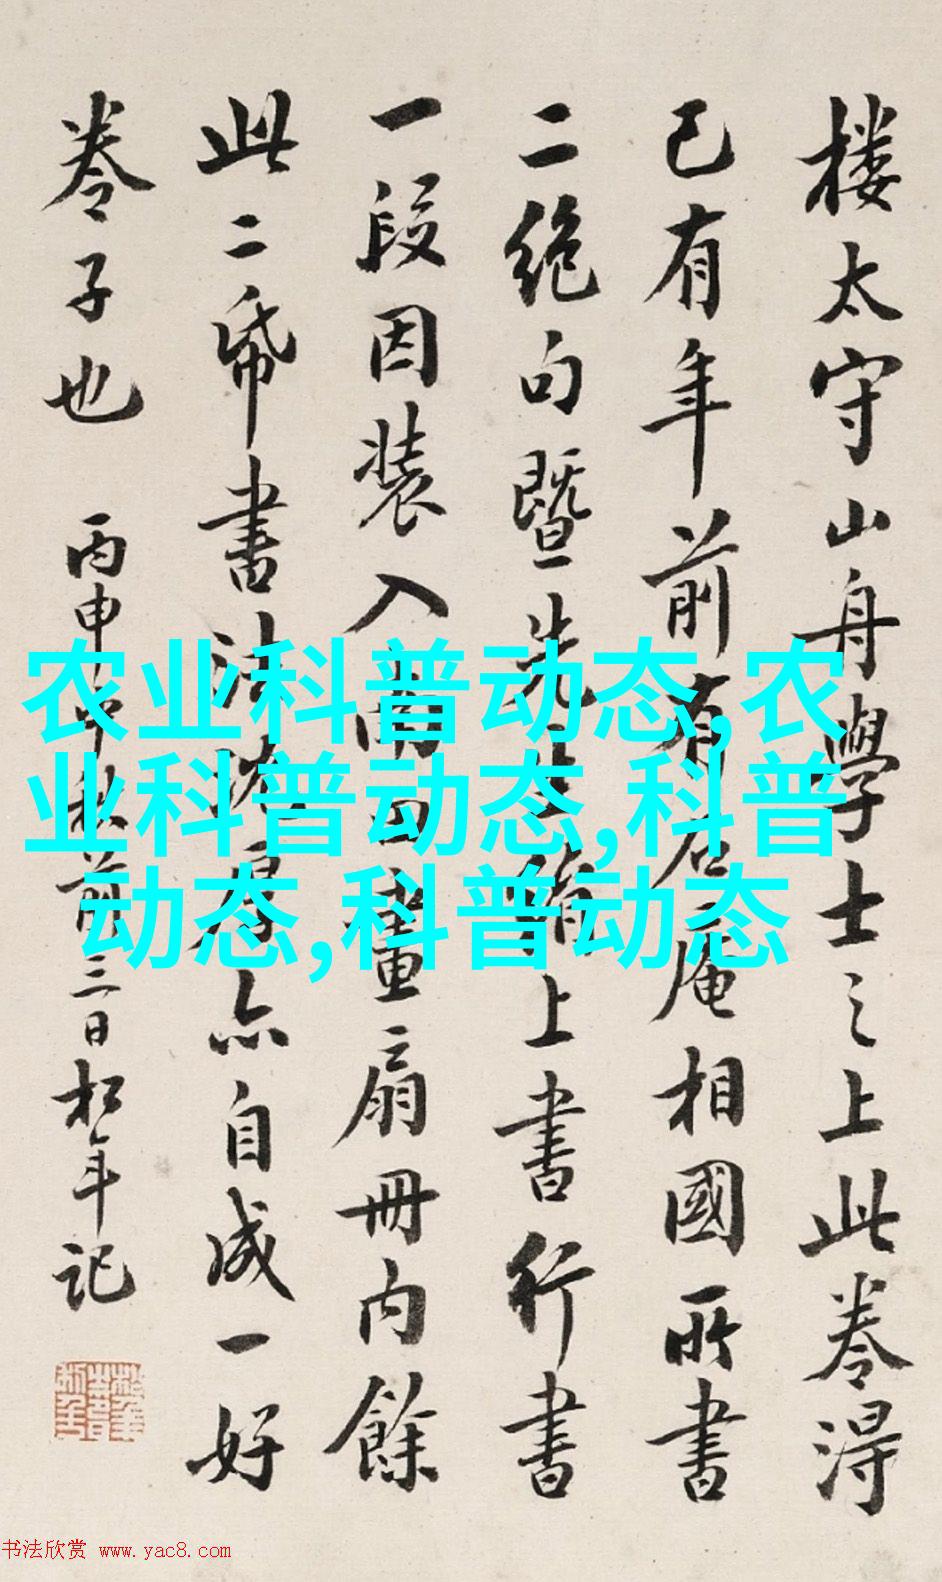 楼太守山舟學士之上此卷得
已有年前有石庵相國所書
二絶句暨先生箋上書行書
一段因装入南田畫扇冊内餘
此二帋書法撫厚亦自成一好
卷子也
丙申中秋前三日松年记
农业科普动态,农
业科普动态,科普
动态,科普动态
书法欣赏 www.yac8.com